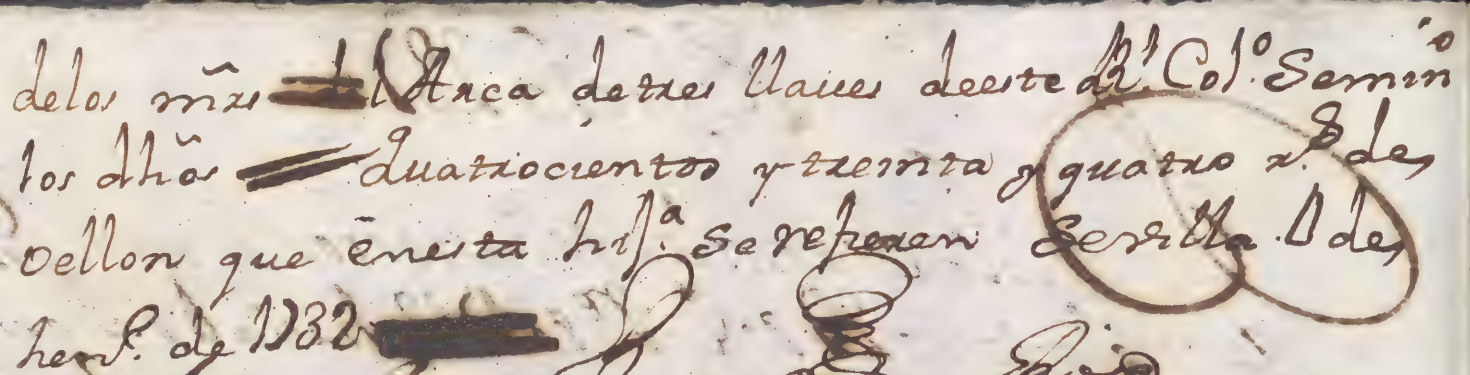 delos mr̃s el Arca detres llaves deeste Rl. Colo. Semino
los dhõs quatrocientos y treinta y quatro rs. de
vellon que ēnesta hija. se refieren Sevilla 1 de
henro. de 1732